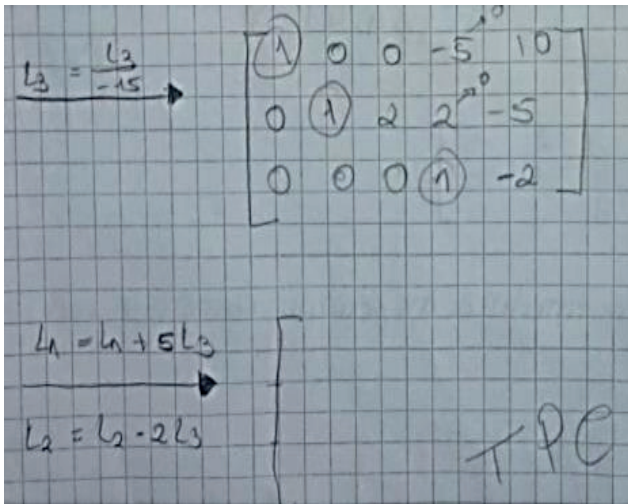 L3 = L3/-15
1 0 0 -5→0 10
0 1 2 2→0 -5
0 0 0 1 -2
L1 = L1 + 5L3
L2 = L2 - 2L3
TPC